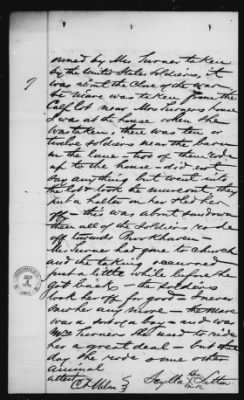 9
owned by Mrs Turner taken
by the United States Soldiers, it
was about the Close of the war
the Mare was taken from the
Calf lot near Mrs Turners house
I was at the house when she
was taken, there was ten or
twelve soldiers near the barn
in the lane two of them rode
up to the house did not
say anything but went into
the lot & took the mare out they
put a halter on her & led her
off — this was about sundown
then all of the Soldiers rode
off towards Brookhaven
Mrs Turner had gone to Church
and the taking occurred
just a little while before she
got back — the soldiers
took her off for good I never
saw her any more — the Mare
was a sort of a bay — and was
Mrs Turners She used to ride
her a great deal — but that
day she rode some other
animal
attest
her
mark